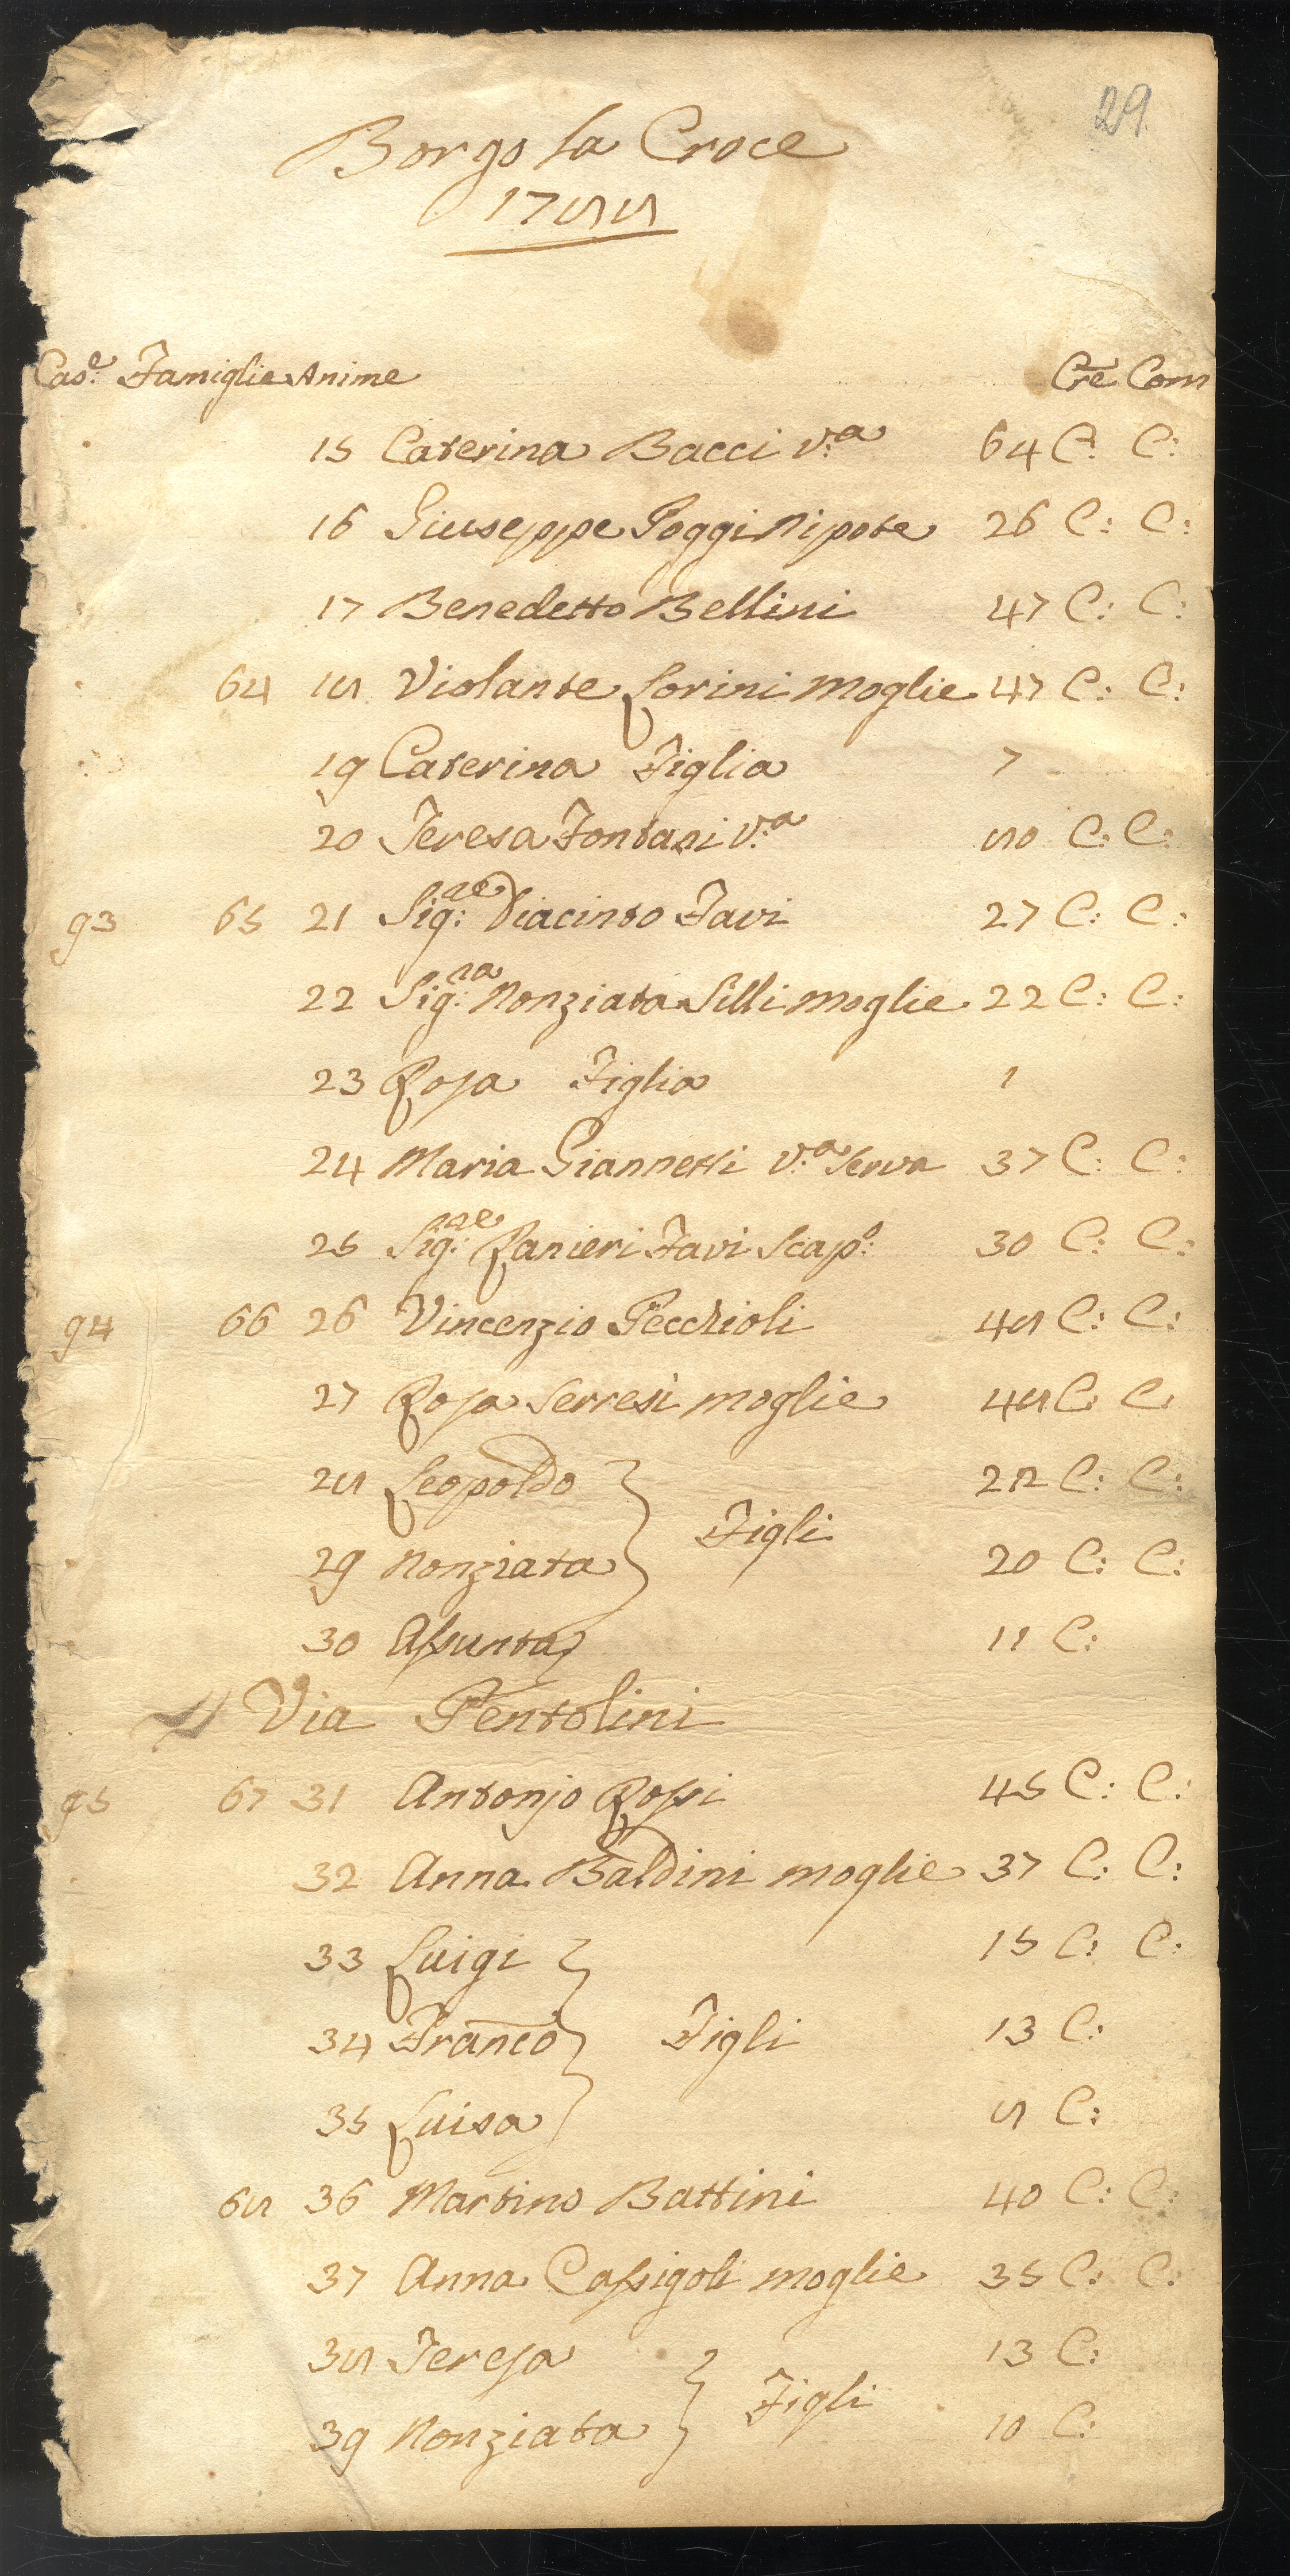 29.
Borgo la Croce
1788
Cas.e Famiglie Anime Cre Com
15 Caterina Bacci V.a 64 C: C:
16 Giuseppe Poggi Nipote 26 C: C:
17 Benedetto Bellini 47 C: C:
64 18 Violante Lorini Moglie 47 C: C:
19 Caterina Figlia 7
20 Teresa Fontani V.a 80 C: C:
93 65 21 Sig:re Diacinto Favi 27 C: C:
22 Sig:ra Nonziata Silli Moglie 22 C: C:
23 Rosa Figlia 1
24 Maria Giannetti V.a Serva 37 C: C:
25 Sig:re Ranieri Favi Scap.o 30 C: C:
94 66 26 Vincenzio Pecchioli 48 C: C:
27 Rosa Serresi moglie 48 C: C:
28 Leopoldo 22 C: C:
Figli
29 Nonziata 20 C: C:
30 Assunta 11 C:
Via Pentolini
95 67 31 Antonjo Rossi 45 C: C:
32 Anna Baldini moglie 37 C: C:
33 Luigi 15 C: C:
34 Franco Figli 13 C:
35 Luisa 8 C:
68 36 Martino Battini 40 C: C:
37 Anna Cassigoli moglie 35 C: C:
38 Teresa 13 C:
Figli
39 Nonziata 10 C: